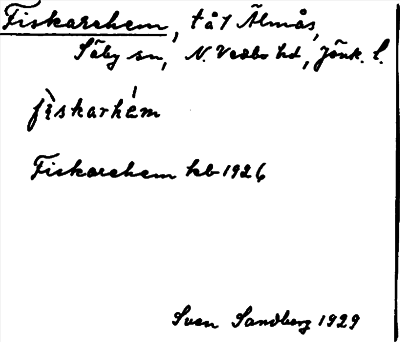 Fiskarehem, tå 1 Älmås,
Säby sn, N. Vedbo hd, Jönk. l.
fìskarhém
Fiskarehem kb 1926
Sven Sandberg 1929